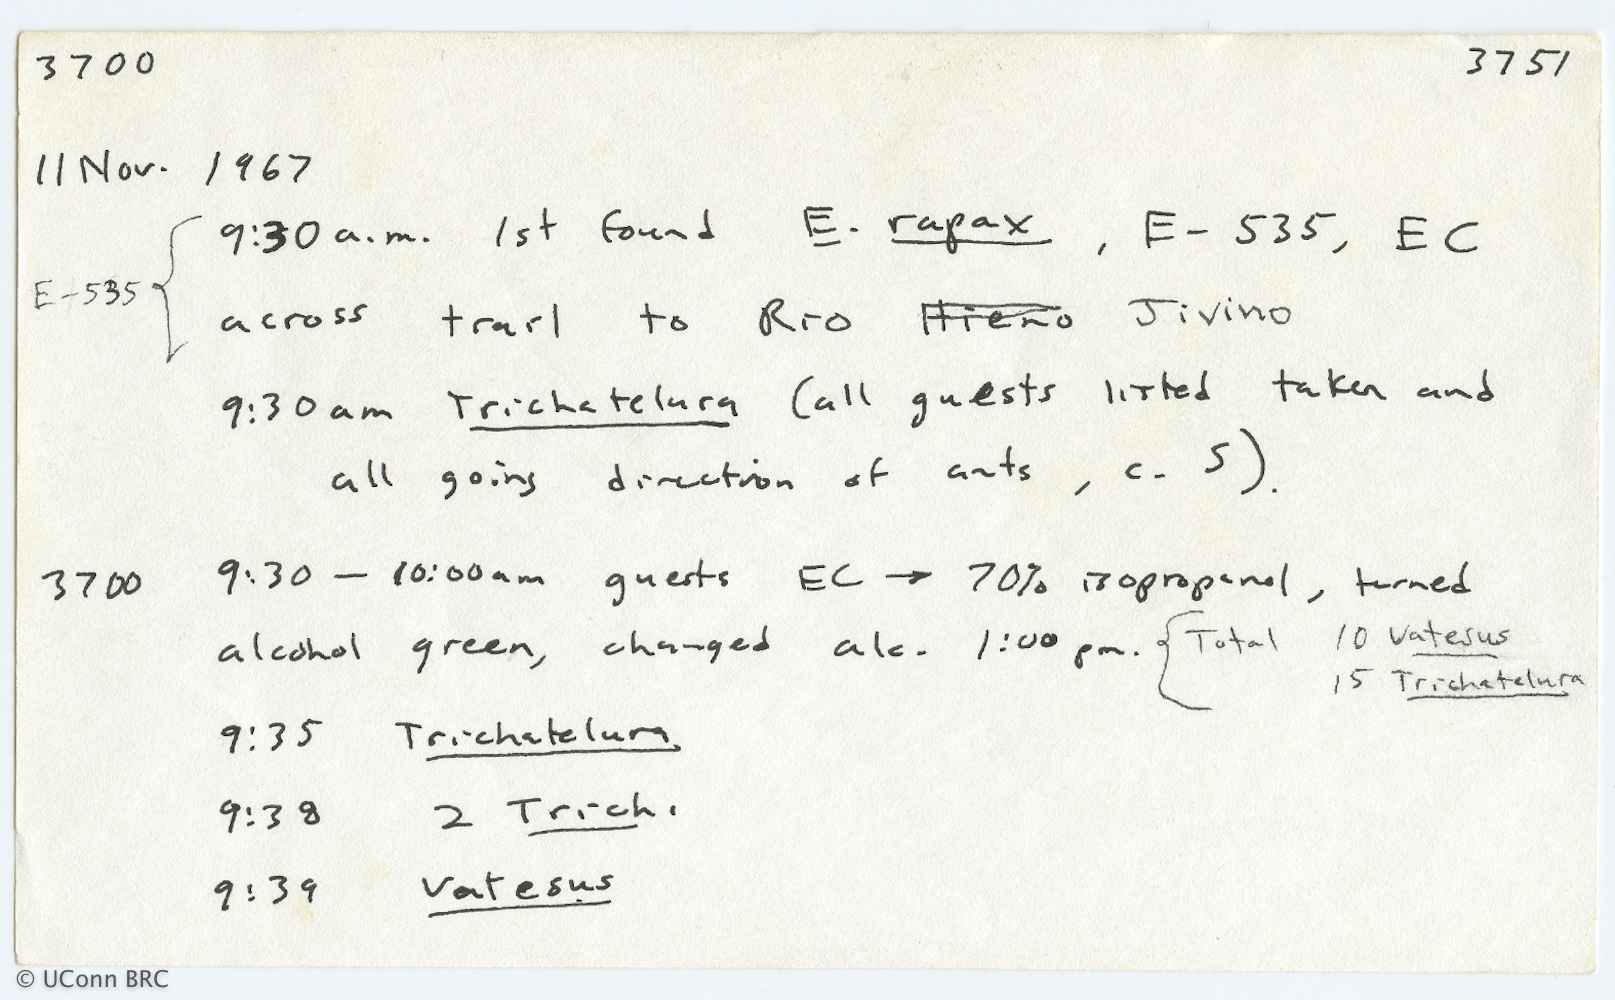 3700 3751
11 Nov. 1967
9:30 a.m. 1st found E. rapax, E-535, EC
E-535
across trail to Rio Hieno Jivino
9:30 am Trichatelura (all guests listed taken and
all going direction of ants, c. 5).
3700 9:30 – 10:00am guests EC → 70% isopropanol, turned
alcohol green, changed alc. 1:00 pm. { Total 10 Vatesus
15 Trichatelura
9:35 Trichatelura
9:38 2 Trich.
9:39 Vatesus
© UConn BRC